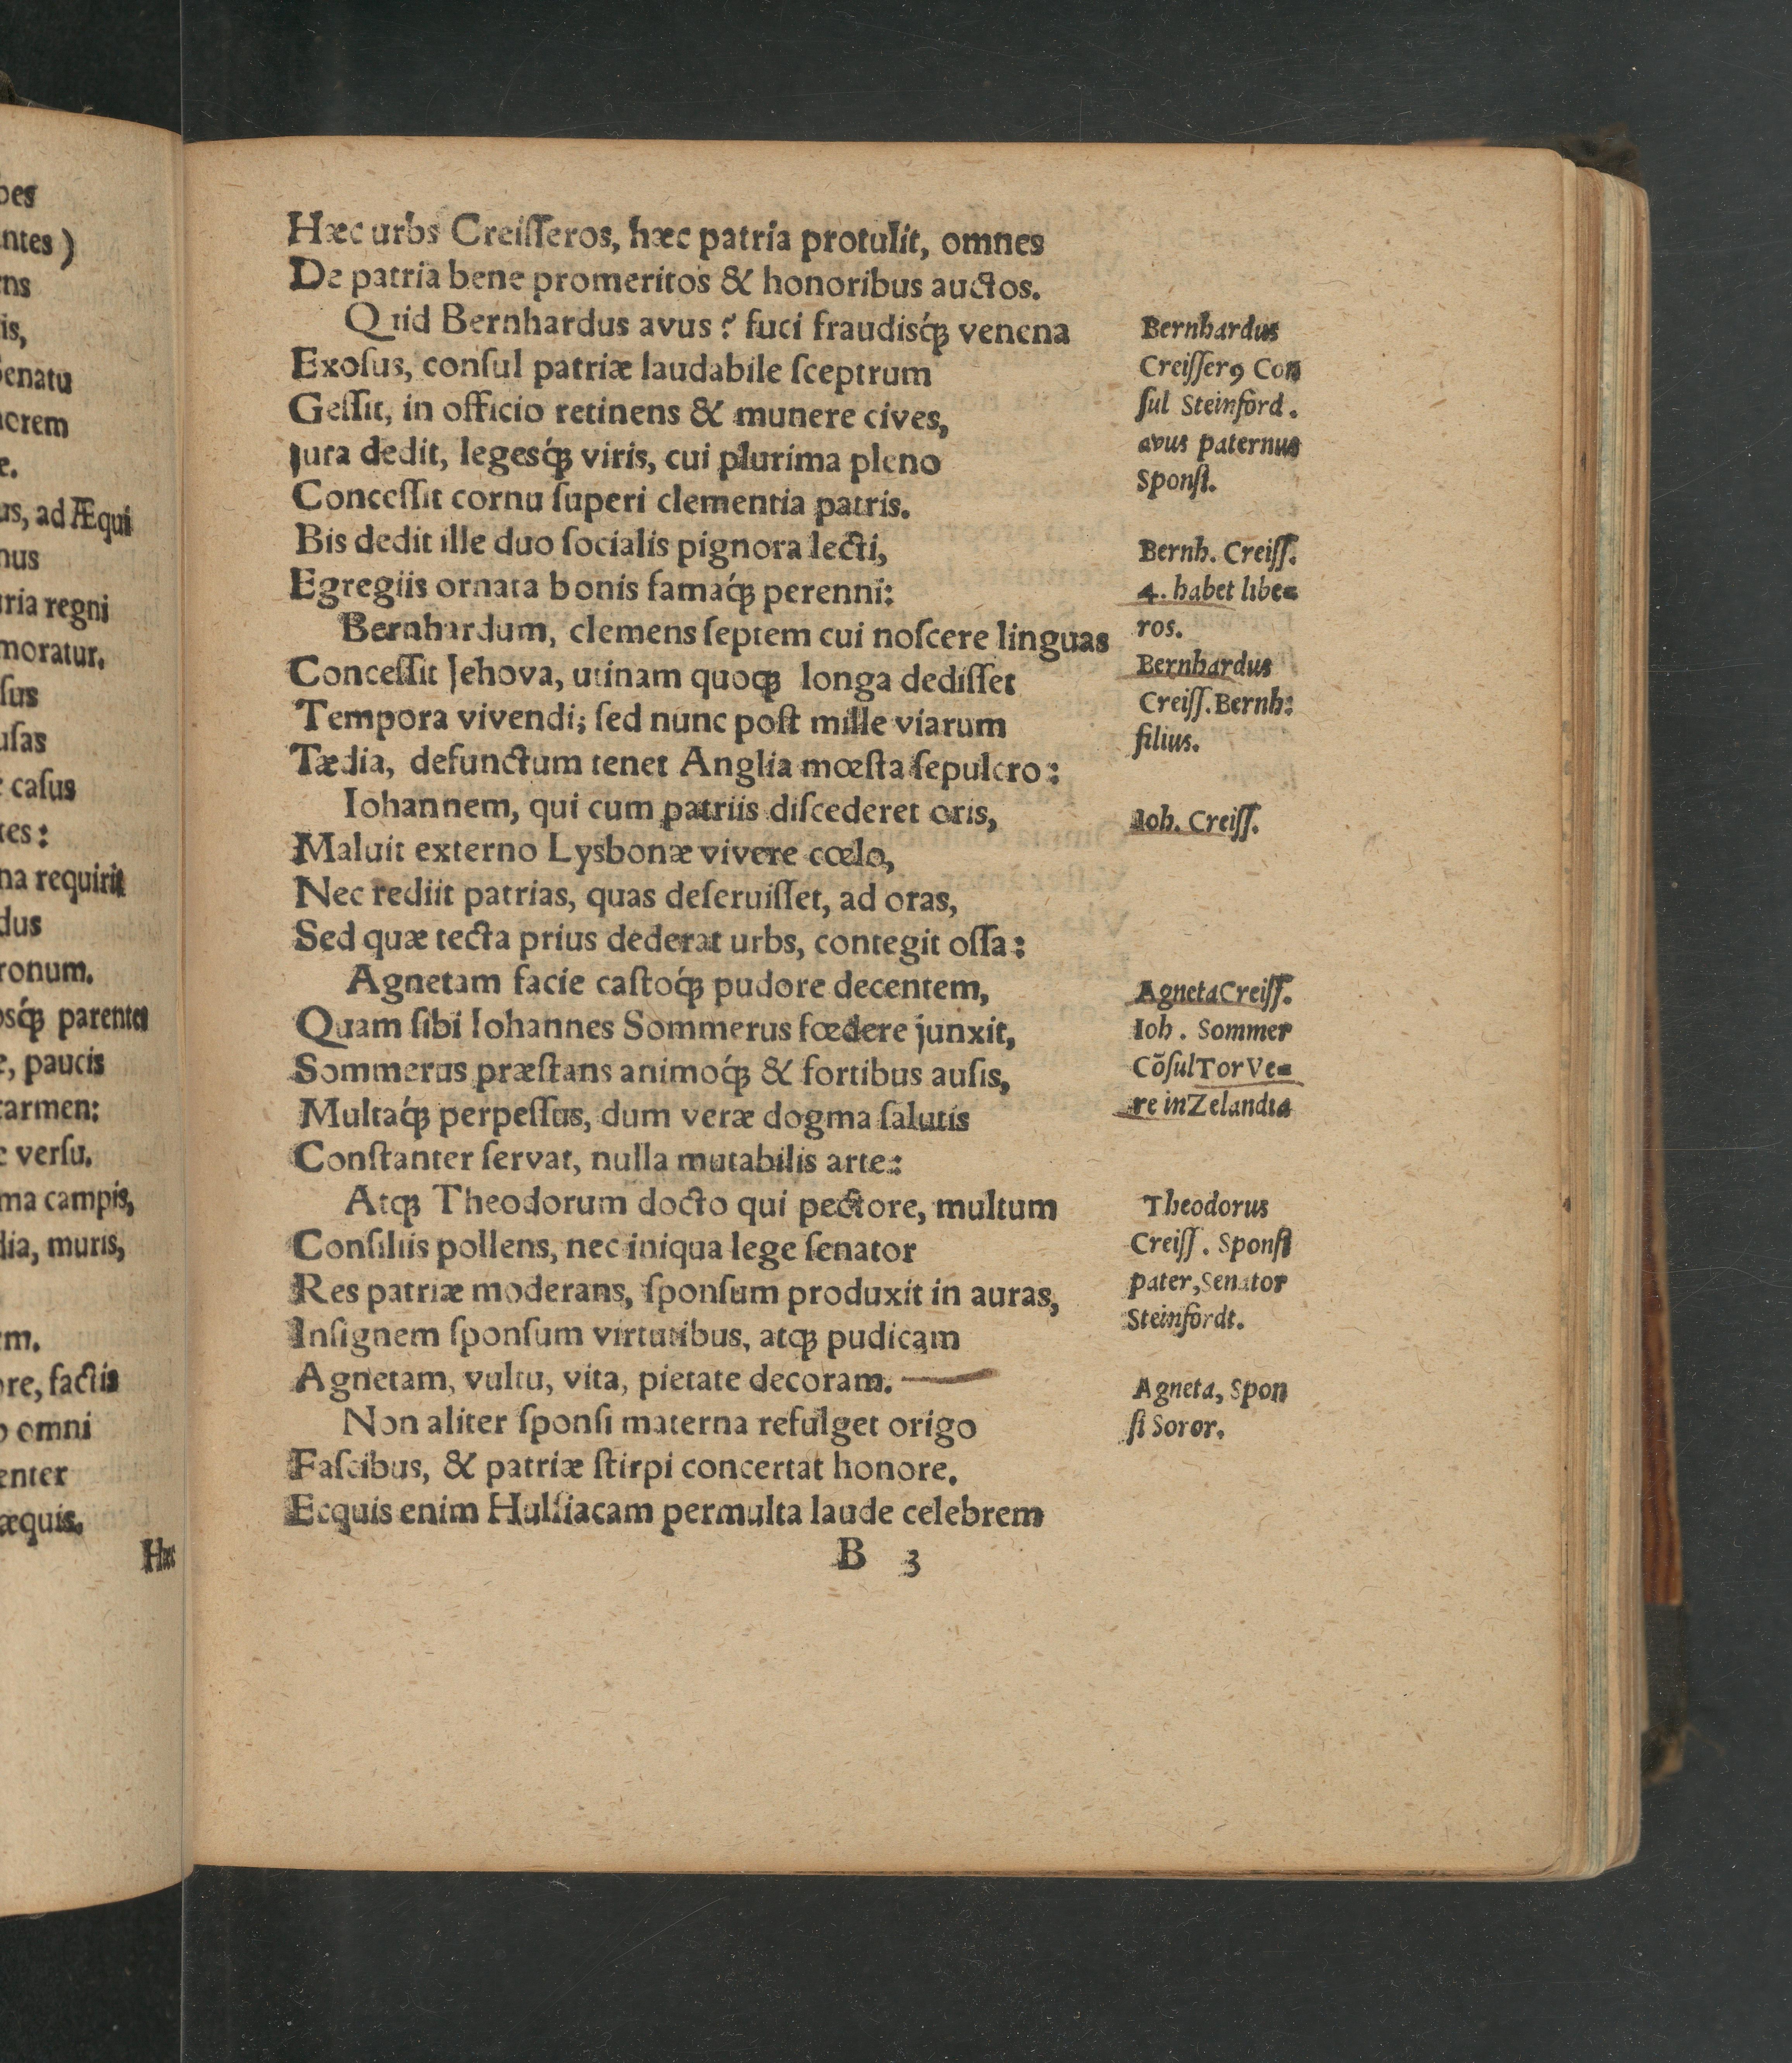 bes
ntes)
ns
is,
Senatu
norem
e.
us, ad Æqui
nus
tria regni
moratur.
ſus
uſas
caſus
tes:
na requirit
dus
ronum.
osq́ꝫ parentes
e, paucis
carmen:
c verſu.
ma campis,
dia, muris,
m.
ore, factis
o omni
enter
æquis.
Hæc
Hæc urbs Creiſſeros, hæc patria protulit, omnes
De patria bene promeritos & honoribus auctos.
Quid Bernhardus avus? fuci fraudisq́ꝫ venena
Exoſus, conſul patriæ laudabile ſceptrum
Geſſit, in officio retinens & munere cives,
Jura dedit, legesq́ꝫ viris, cui plurima pleno
Conceſſit cornu ſuperi clementia patris.
Bis dedit ille duo ſocialis pignora lecti,
Egregiis ornata bonis famaq́ꝫ perenni:
Bernhardum, clemens ſeptem cui noſcere linguas
Conceſſit Jehova, utinam quoqꝫ longa dediſſet
Tempora vivendi; ſed nunc poſt mille viarum
Tædia, defunctum tenet Anglia mœſta ſepulcro:
Iohannem, qui cum patriis diſcederet oris,
Maluit externo Lysbonæ vivere cœlo,
Nec rediit patrias, quas deſeruiſſet, ad oras,
Sed quæ tecta prius dederat urbs, contegit oſſa:
Agnetam facie caſtoq́ꝫ pudore decentem,
Quam ſibi Iohannes Sommerus fœdere junxit,
Sommerus præſtans animoq́ꝫ & fortibus auſis,
Multaq́ꝫ perpeſſus, dum veræ dogma ſalutis
Conſtanter ſervat, nulla mutabilis arte:
Atqꝫ Theodorum docto qui pectore, multum
Conſiliis pollens, nec iniqua lege ſenator
Res patriæ moderans, ſponſum produxit in auras,
Inſignem ſponſum virtutibus, atqꝫ pudicam
Agnetam, vultu, vita, pietate decoram.
Non aliter ſponſi materna refulget origo
Faſcibus, & patriæ ſtirpi concertat honore.
Ecquis enim Hulſiacam permulta laude celebrem
B 3
Bernhardus
Creiſſerꝰ Con
ſul Steinford.
avus paternus
Sponſi.
Bernh. Creiſſ.
4. habet libe=
ros.
Bernhardus
Creiſſ. Bernh:
filius.
Ioh. Creiſſ.
Agneta Creiſſ.
Ioh. Sommer
Cõſul Tor Ve=
re in Zelandia
Theodorus
Creiſſ. Sponſi
pater, Senator
Steinfordt.
Agneta, Spon
ſi Soror.